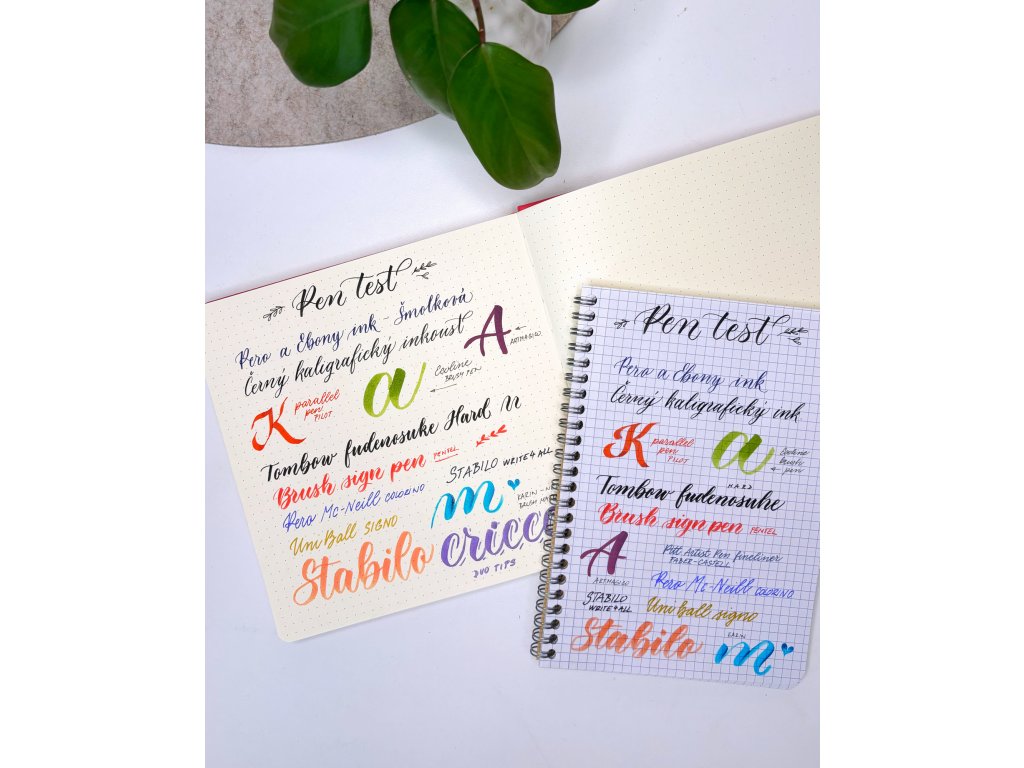 Pen test
Pero a Ebony ink - Šmolková
Černý kaligrafický inkoust
A
ARTMAGICO
K
parallel
pen
PILOT
a
Coolinie
BRUSH PEN
Tombow fudenosuke Hard m
Brush sign pen PENTEL
Pero Mc-Neill COLORINO
STABILO WRITE4ALL
Uni Ball SIGNO
m
KARIN -
BRUSH
Stabilo
cricco
DUO TIPS
Pen test
Pero a Ebony ink
Černý kaligrafický ink
K
parallel
pen
PILOT
a
Coolinie
brush
pen
HARD
Tombow fudenosuke
Brush sign pen PENTEL
A
ARTMAGICO
Pitt Artist Pen fineliner
FABER-CASTELL
Pero Mc-Neill COLORINO
STABILO
WRITE4ALL
Uni Ball signo
Stabilo
KARIN
m